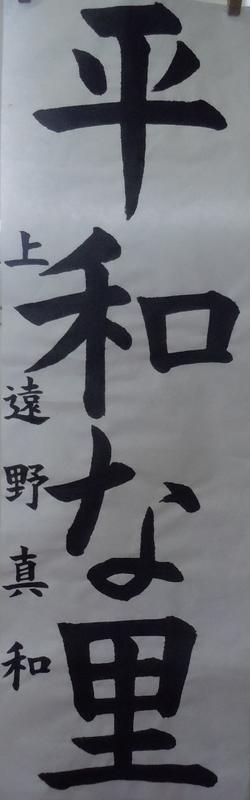 平和な里
上遠野真和